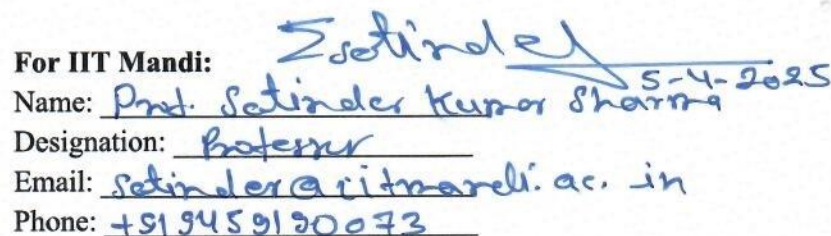 For IIT Mandi: Satinder
5-4-2025
Name: Prof. Satinder Kumar Sharma
Designation: Professor
Email: satinder@iitmandi.ac.in
Phone: +919459190073